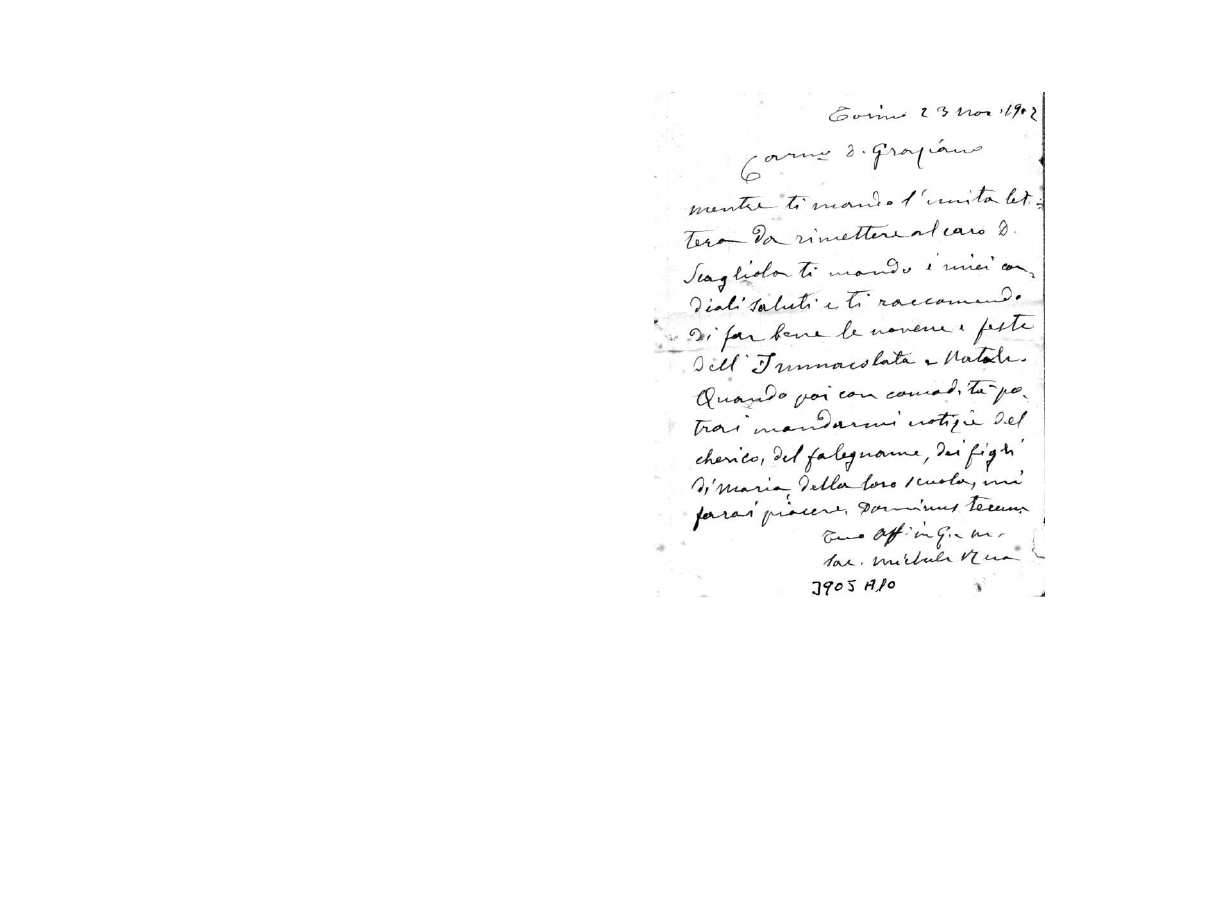 Torino 23 Nov. 1902
Car.mo D. Graziano
mentre ti mando l'unita let-
tera da rimettere al caro D.
Scagliola ti mando i miei cor-
diali saluti e ti raccomando
di far bene le novene e feste
dell'Immacolata e Natale.
Quando poi con comodità po-
trai mandarmi notizie del
cherico, del falegname, dei figli
di Maria, della loro scuola, mi
farai piacere. Dominus tecum
Tuo aff. in G. e M.
Sac. Michele Rua
3905 A10